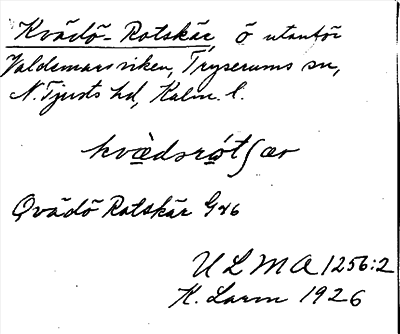 Kvädö-Rotskär, ö utanför
Valdemarsviken, Tryserums sn,
N. Tjusts hd, Kalm. l.
kvä̀dsrótʃær
Qvädö Rotskär G46
ULMA 1256:2
K. Larm 1926